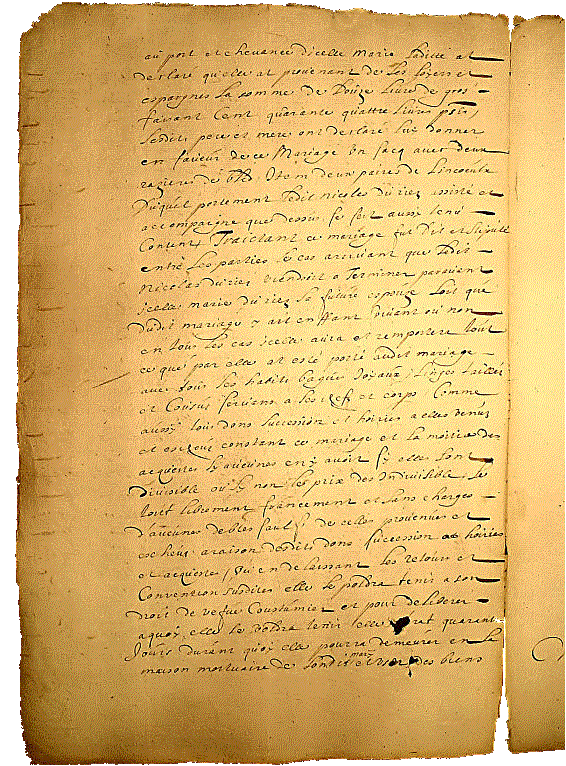 au port et chevance d'icelle Marie ladicte at
declaré qu'elle at provenant de ses loyers et
espargnes la somme de douze livres de gros
faisant cent quarante quattre livres
lesdits pere et mere ont declaré luy donner
en faveur de ce Mariage un sacq avec deux
razieres de bled Item deux paires de linceulx
Duquel portement ledit nicolas du riez assisté et
accompagné que dessus se est aussy tenu
Content Traictant ce mariage fut dit et stipulé
entre les parties le cas arrivant que ledit
Nicolas du riez viendroit a Terminer paravant
icelle marie du riez sa future espouze soit que
dudit mariage y ait enffant vivant ou non
en tous les cas icelle aura et remportera tout
ce que par elle at esté porté audit mariage
avec tous ses habits bagues Joyaux linges tailles
et Cousus servans a ses chef et corps Comme
aussy tous dons succession et hoiries a elle venus
et escheus constant ce mariage et la moitie des
acquestes sy aucunes en y avoit sy elles sont
divisible ou sy non les prix des Indivisible le
tout librement franchement et sans charges
d'aucunes debtes sauf de celles provenues et
escheus a raison desdits dons succession hoiries
et acquestes, ou en delaissant les retours et
Convention susdites elle se poldra tenir a son
droit de vefve Coustumier et pour deliberer
a quoy elle se voldra tenir elle at quarante
Jours durant quoy elle pourra demeurer en la
maison mortuaire de sondit mary et vivre des biens